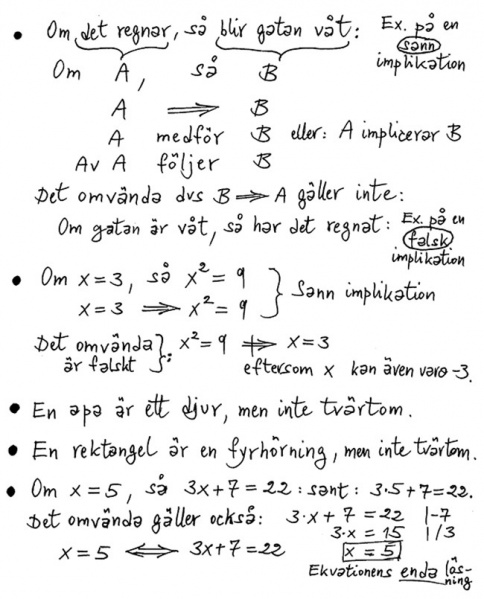 • Om det regnar, så blir gatan våt: Ex. på en
sann
implikation
Om A, så B
A ⟹ B
A medför B eller: A implicerar B
Av A följer B
Det omvända dvs B ⟹ A gäller inte:
Om gatan är våt, så har det regnat: Ex. på en
falsk
implikation
• Om x = 3, så x² = 9
x = 3 ⟹ x² = 9 } Sann implikation
Det omvända
är falskt }: x² = 9 ⇏ x = 3
eftersom x kan även vara -3.
• En apa är ett djur, men inte tvärtom.
• En rektangel är en fyrhörning, men inte tvärtom.
• Om x = 5, så 3x + 7 = 22 : sant: 3·5 + 7 = 22.
Det omvända gäller också: 3·x + 7 = 22 |-7
3·x = 15 | 1/3
x = 5 ⟺ 3x + 7 = 22 x = 5
Ekvationens enda lös-
ning